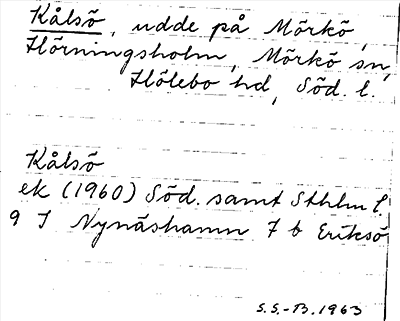 Kålsö, udde på Mörkö,
Hörningsholm, Mörkö sn,
Hölebo hd, Söd. l.
Kålsö
ek (1960) Söd. samt Sthlm l
9 I Nynäshamn 7 b Eriksö
S.S.-B. 1963